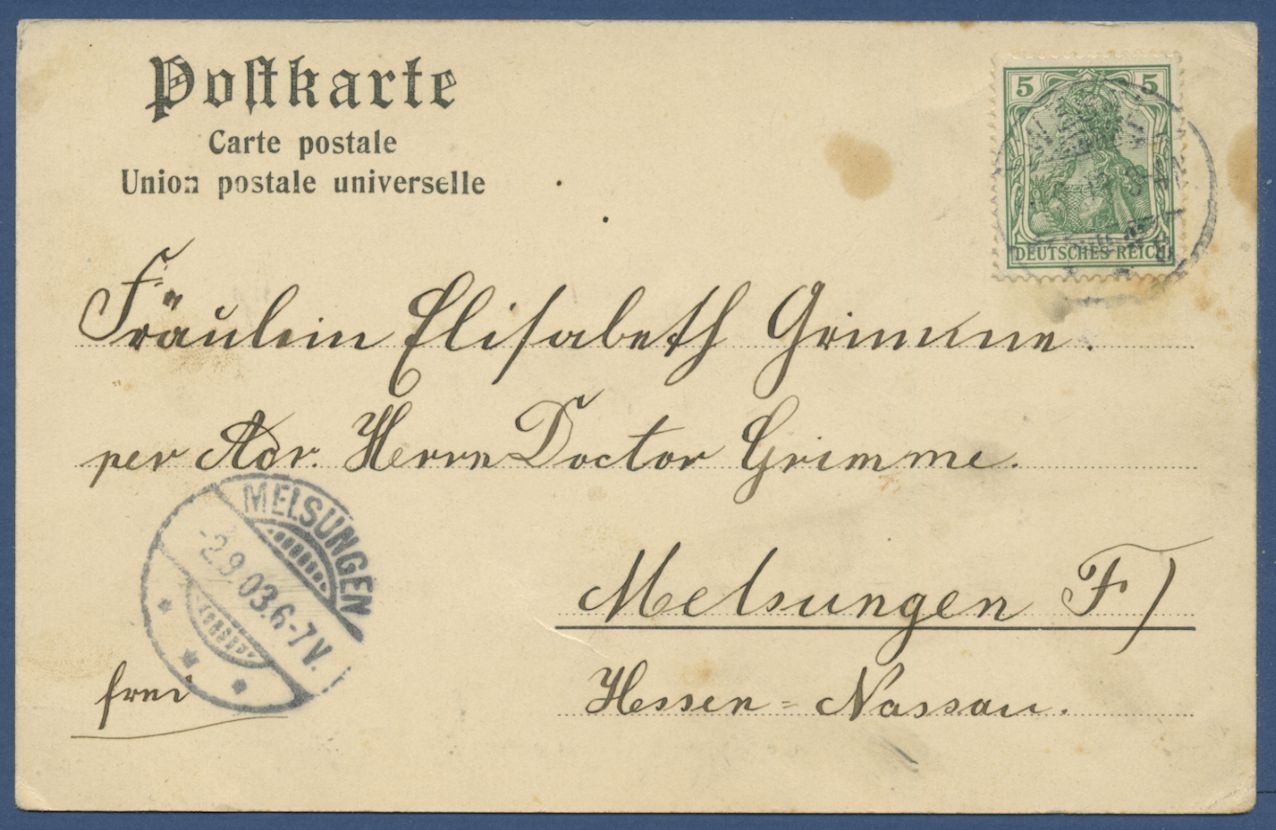 Postkarte
Carte postale
Union postale universelle
5 5
DEUTSCHES REICH
Fräulein Elisabeth Grimme.
per Adr. Herrn Doctor Grimme.
MELSUNGEN
-2.9.03.6-7V.
Melsungen F)
frei
Hessen=Nassau.